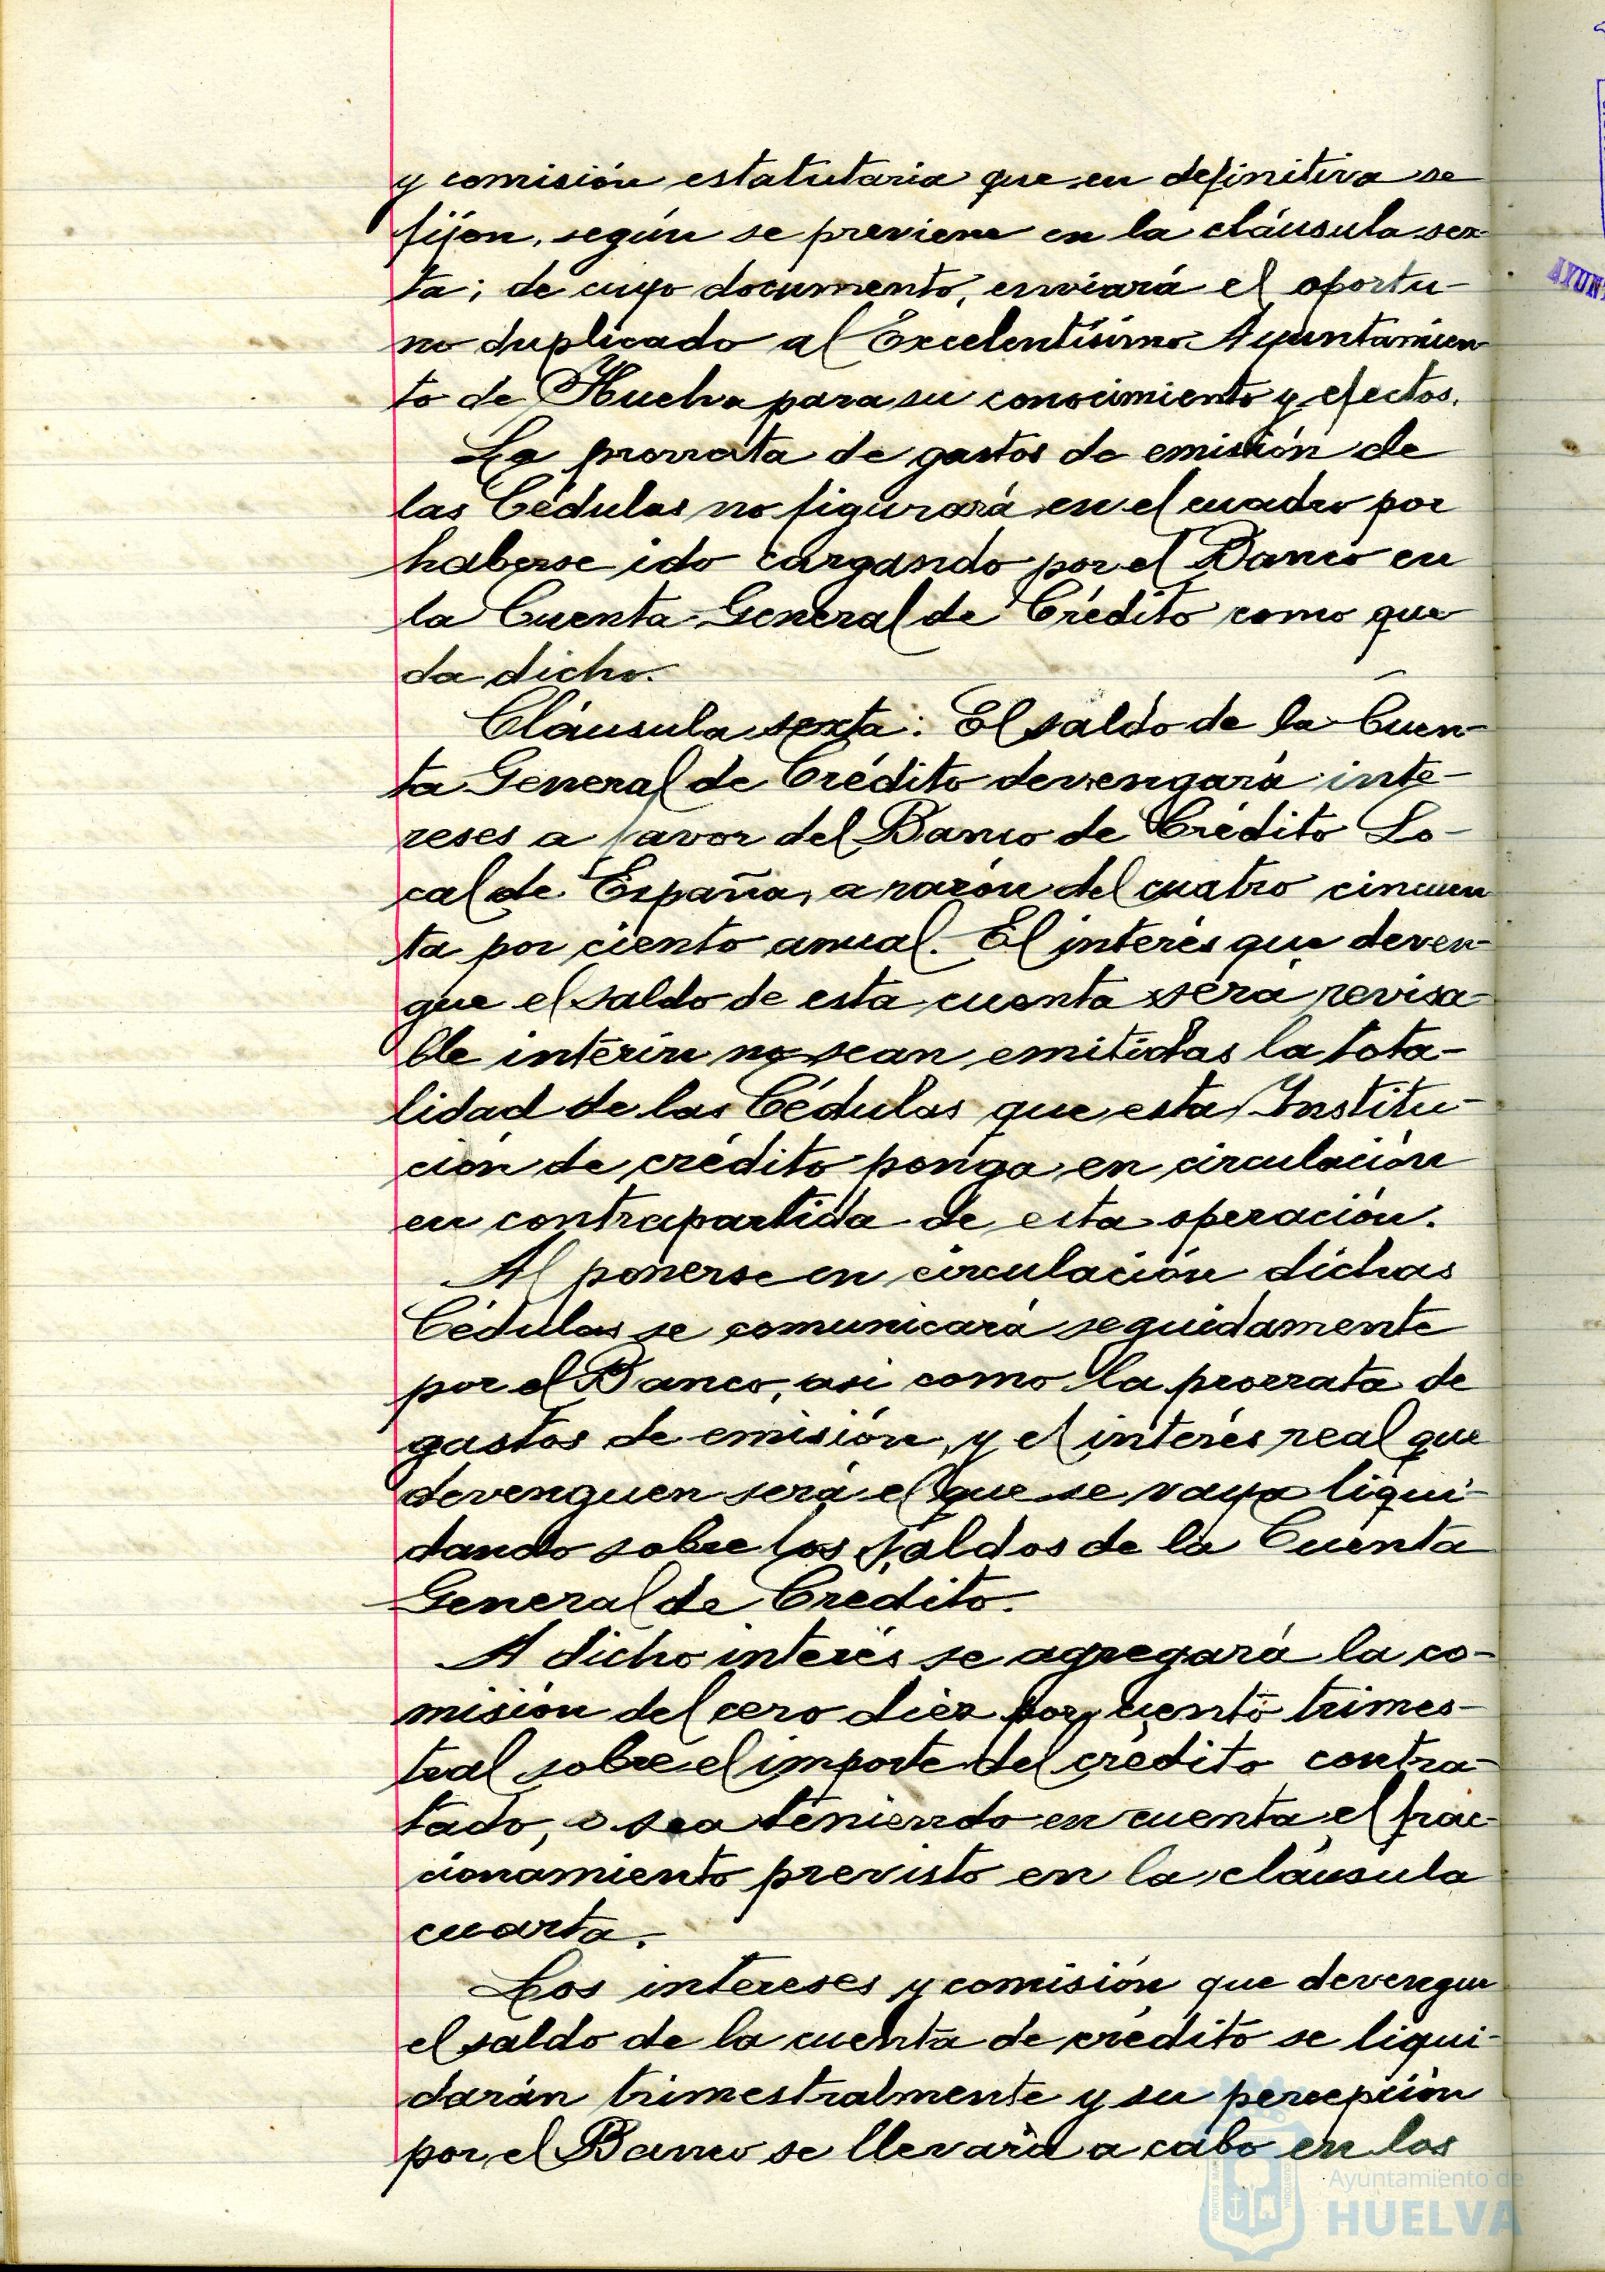 y comisión estatutaria que en definitiva se
fijen, según se previene en la cláusula sex-
ta; de cuyo documento, enviará el oportu-
no duplicado al Excelentísimo Ayuntamien
to de Huelva para su conocimiento y efectos.
La prorrata de gastos de emisión de
las Cédulas no figurará en el cuadro por
haberse ido cargando por el Banco en
la Cuenta General de Crédito como que
da dicho.
Cláusula sexta: El saldo de la Cuen-
ta General de Crédito devengará inte-
reses a favor del Banco de Crédito Lo-
cal de España, a razón del cuatro cincuen
ta por ciento anual. El interés que deven-
gue el saldo de esta cuenta será revisa-
ble interin no sean emitidas la tota-
lidad de las Cédulas que esta Institu-
ción de crédito ponga en circulación
en contrapartida de esta operación.
Al ponerse en circulación dichas
Cédulas se comunicará seguidamente
por el Banco, asi como la prorrata de
gastos de emisión, y el interés real que
devenguen será el que se vaya liqui-
dando sobre los saldos de la Cuenta
General de Crédito.
A dicho interés se agregará la co-
misión del cero diez por ciento trimes-
tral sobre el importe del crédito contra-
tado, o sea teniendo en cuenta el frac-
cionamiento previsto en la cláusula
cuarta.
Los intereses y comisión que devengue
el saldo de la cuenta de crédito se liqui-
darán trimestralmente y su percepción
por el Banco se llevará a cabo en los
Ayuntamiento de
HUELVA